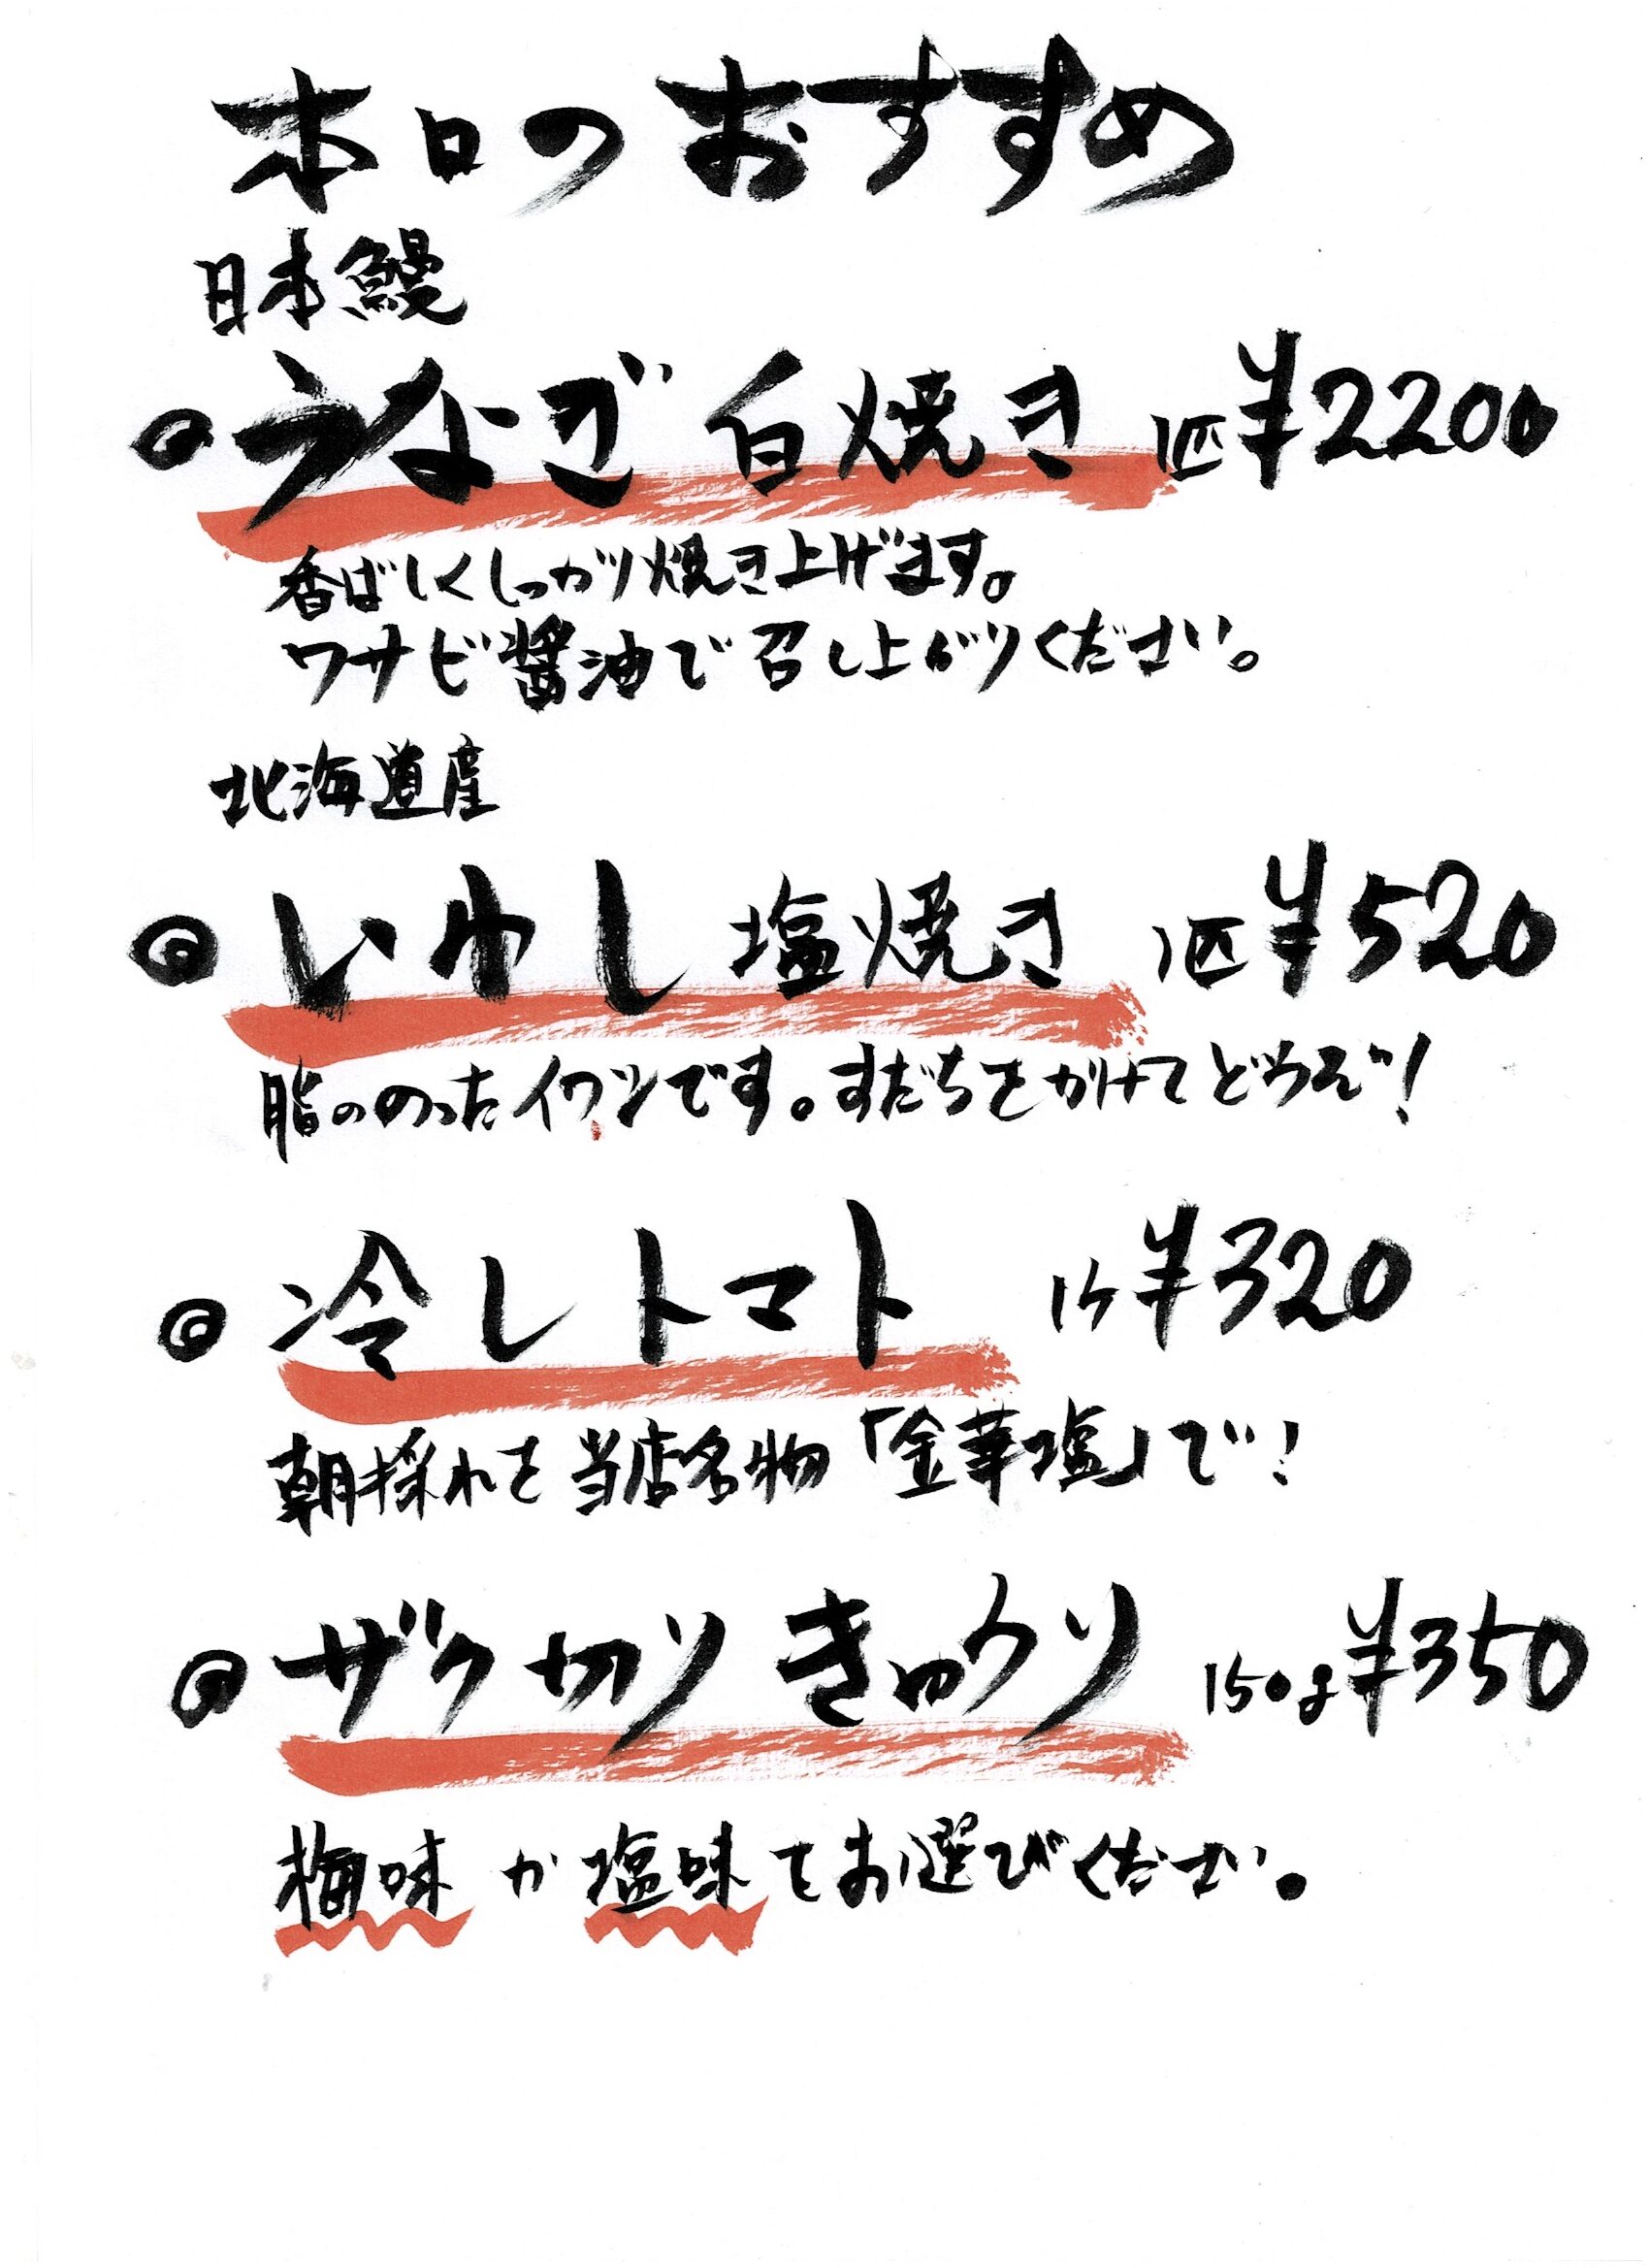 本日のおすすめ
日本鰻
◎うなぎ 白焼き 1匹¥2200
香ばしくしっかり焼き上げます。
ワサビ醤油で召し上がりください。
北海道産
◎いわし 塩焼き 1匹¥520
脂ののったイワシです。すだちをかけてどうぞ!
◎冷しトマト 1ケ¥320
朝採れを当店名物「金華塩」で!
◎ザク切りきゅうり 150g¥350
梅味か塩味をお選びください。